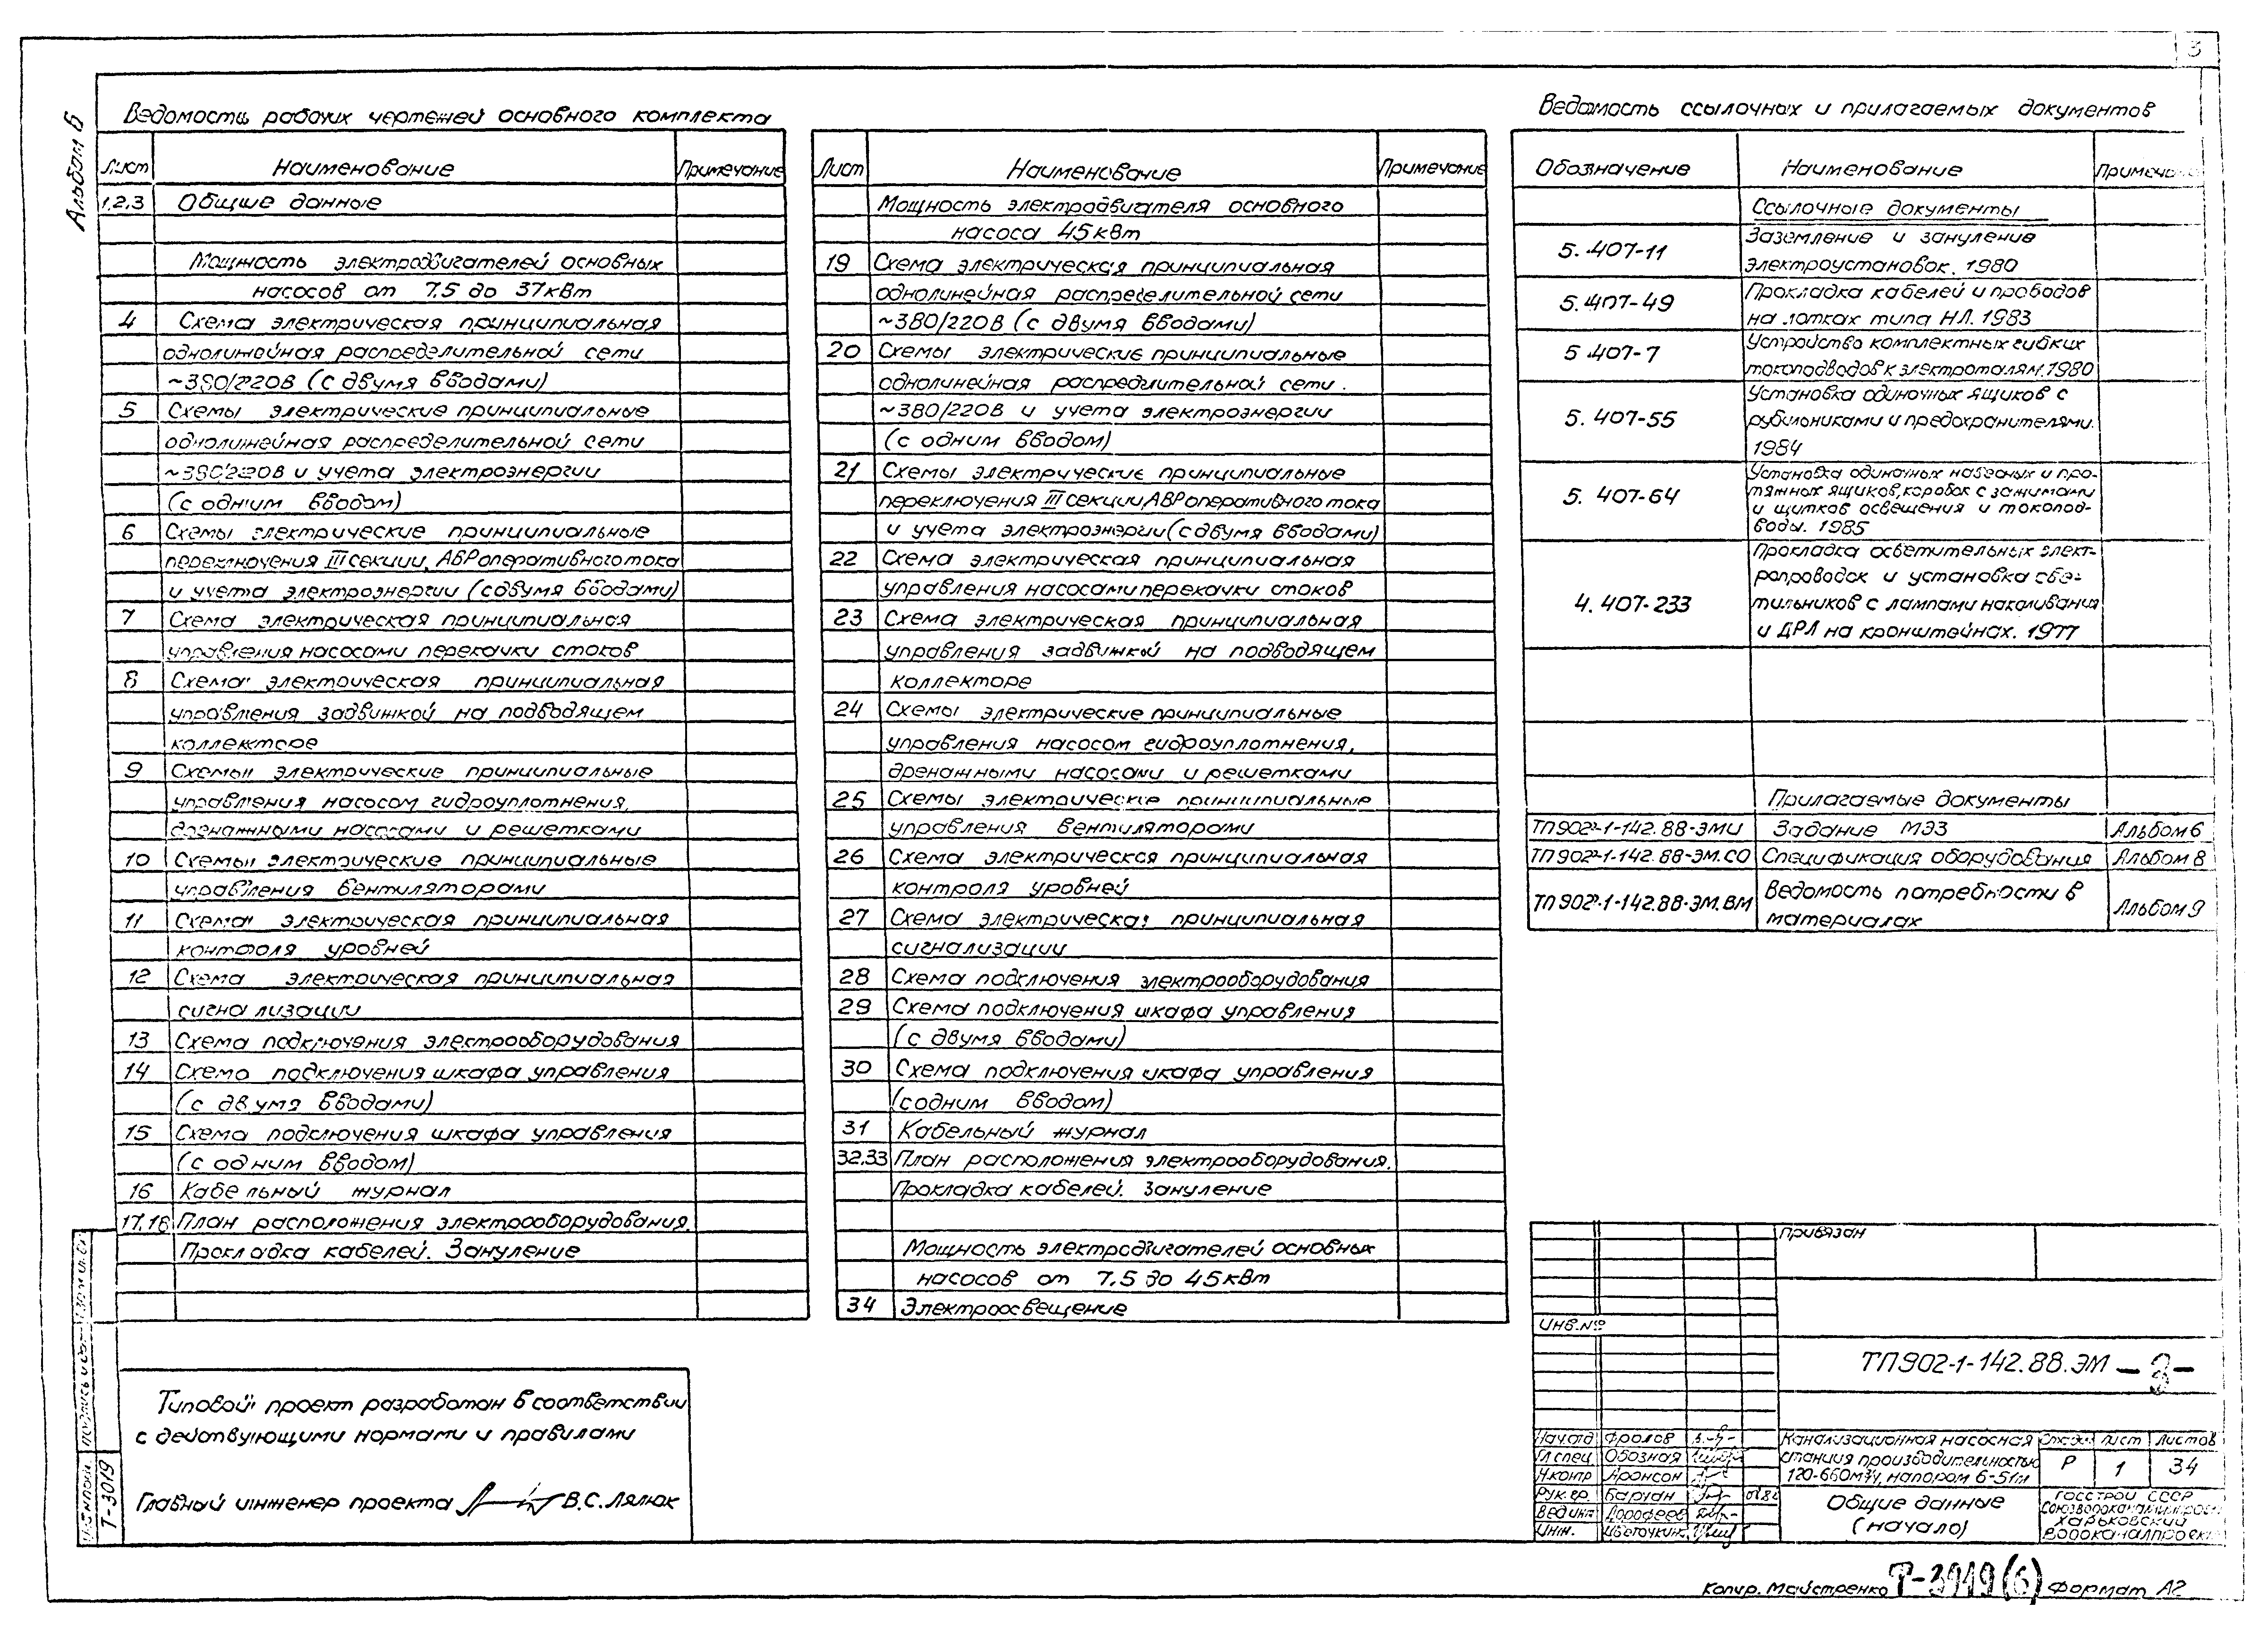 3
Альбом 6
Ведомость рабочих чертежей основного комплекта
Лист Наименование Примечание
1,2,3 Общие данные
Мощность электродвигателей основных
насосов от 7,5 до 37кВт
4 Схема электрическая принципиальная
однолинейная распределительной сети
~380/220В (с двумя вводами)
5 Схемы электрические принципиальные
однолинейная распределительной сети
~380/220В и учета электроэнергии
(с одним вводом)
6 Схемы электрические принципиальные
переключения III секции, АВР оперативного тока
и учета электроэнергии (с двумя вводами)
7 Схема электрическая принципиальная
управления насосами перекачки стоков
8 Схема электрическая принципиальная
управления задвижкой на подводящем
коллекторе
9 Схемы электрические принципиальные
управления насосом гидроуплотнения,
дренажными насосами и решетками
10 Схемы электрические принципиальные
управления вентиляторами
11 Схема электрическая принципиальная
контроля уровней
12 Схема электрическая принципиальная
сигнализации
13 Схема подключения электрооборудования
14 Схема подключения шкафа управления
(с двумя вводами)
15 Схема подключения шкафа управления
(с одним вводом)
16 Кабельный журнал
17,18 План расположения электрооборудования.
Прокладка кабелей. Зануление
Лист Наименование Примечание
Мощность электродвигателя основного
насоса 45кВт
19 Схема электрическая принципиальная
однолинейная распределительной сети
~380/220В (с двумя вводами)
20 Схемы электрические принципиальные
однолинейная распредлительной сети.
~380/220В и учета электроэнергии
(с одним вводом)
21 Схемы электрические принципиальные
переключения III секции, АВР оперативного тока
и учета электроэнергии (с двумя вводами)
22 Схема электрическая принципиальная
управления насосами перекачки стоков
23 Схема электрическая принципиальная
управления задвижкой на подводящем
коллекторе
24 Схемы электрические принципиальные
управления насосом гидроуплотнения,
дренажными насосами и решетками
25 Схемы электрические принципиальные
управления вентиляторами
26 Схема электрическая принципиальная
контроля уровней
27 Схема электрическая принципиальная
сигнализации
28 Схема подключения электрооборудования
29 Схема подключения шкафа управления
(с двумя вводами)
30 Схема подключения шкафа управления
(с одним вводом)
31 Кабельный журнал
32,33 План расположения электрооборудования.
Прокладка кабелей. Зануление
Мощность электродвигателей основных
насосов от 7,5 до 45кВт
34 Электроосвещение
Ведомость ссылочных и прилагаемых документов
Обозначение Наименование Примечание
Ссылочные документы
5.407-11 Заземление и зануление
электроустановок. 1980
5.407-49 Прокладка кабелей и проводов
на лотках типа НЛ. 1983
5.407-7 Устройство комплектных гибких
токоподводов к электроталям. 1980
5.407-55 Установка одиночных ящиков с
рубильниками и предохранителями.
1984
5.407-64 Установка одиночных навесных и про-
тяжных ящиков, коробок с зажимами
и щитков освещения и токопод-
воды. 1985
4.407-233 Прокладка осветительных элект-
ропроводок и установка све-
тильников с лампами накаливания
и ДРЛ на кронштейнах. 1977
Прилагаемые документы
ТП902-1-142.88-ЭМИ Задание МЭЗ Альбом 6
ТП902-1-142.88-ЭМ.СО Спецификация оборудования Альбом 8
ТП902-1-142.88-ЭМ.ВМ Ведомость потребности в
материалах Альбом 9
Типовой проект разработан в соответствии
с действующими нормами и правилами
Главный инженер проекта В.С. Лялюк
Инв.№ подл. Подпись и дата
Т-3019
Привязан
Инв.№
ТП902-1-142.88.ЭМ -3-
Нач.отд Фролов
Гл.спец. Обозная
Н.контр Аронсон
Рук.гр.
Вед.инж Дорофеев
Инж.
Канализационная насосная
станция производительностью
120-660м³/ч, напором 6-51м
Стадия Лист Листов
Р 1 34
Общие данные
(начало)
ГОССТРОЙ СССР
Союзводоканалпроект
Харьковский
Водоканалпроект
Копир. Майстренко Т-3919(6) Формат А2